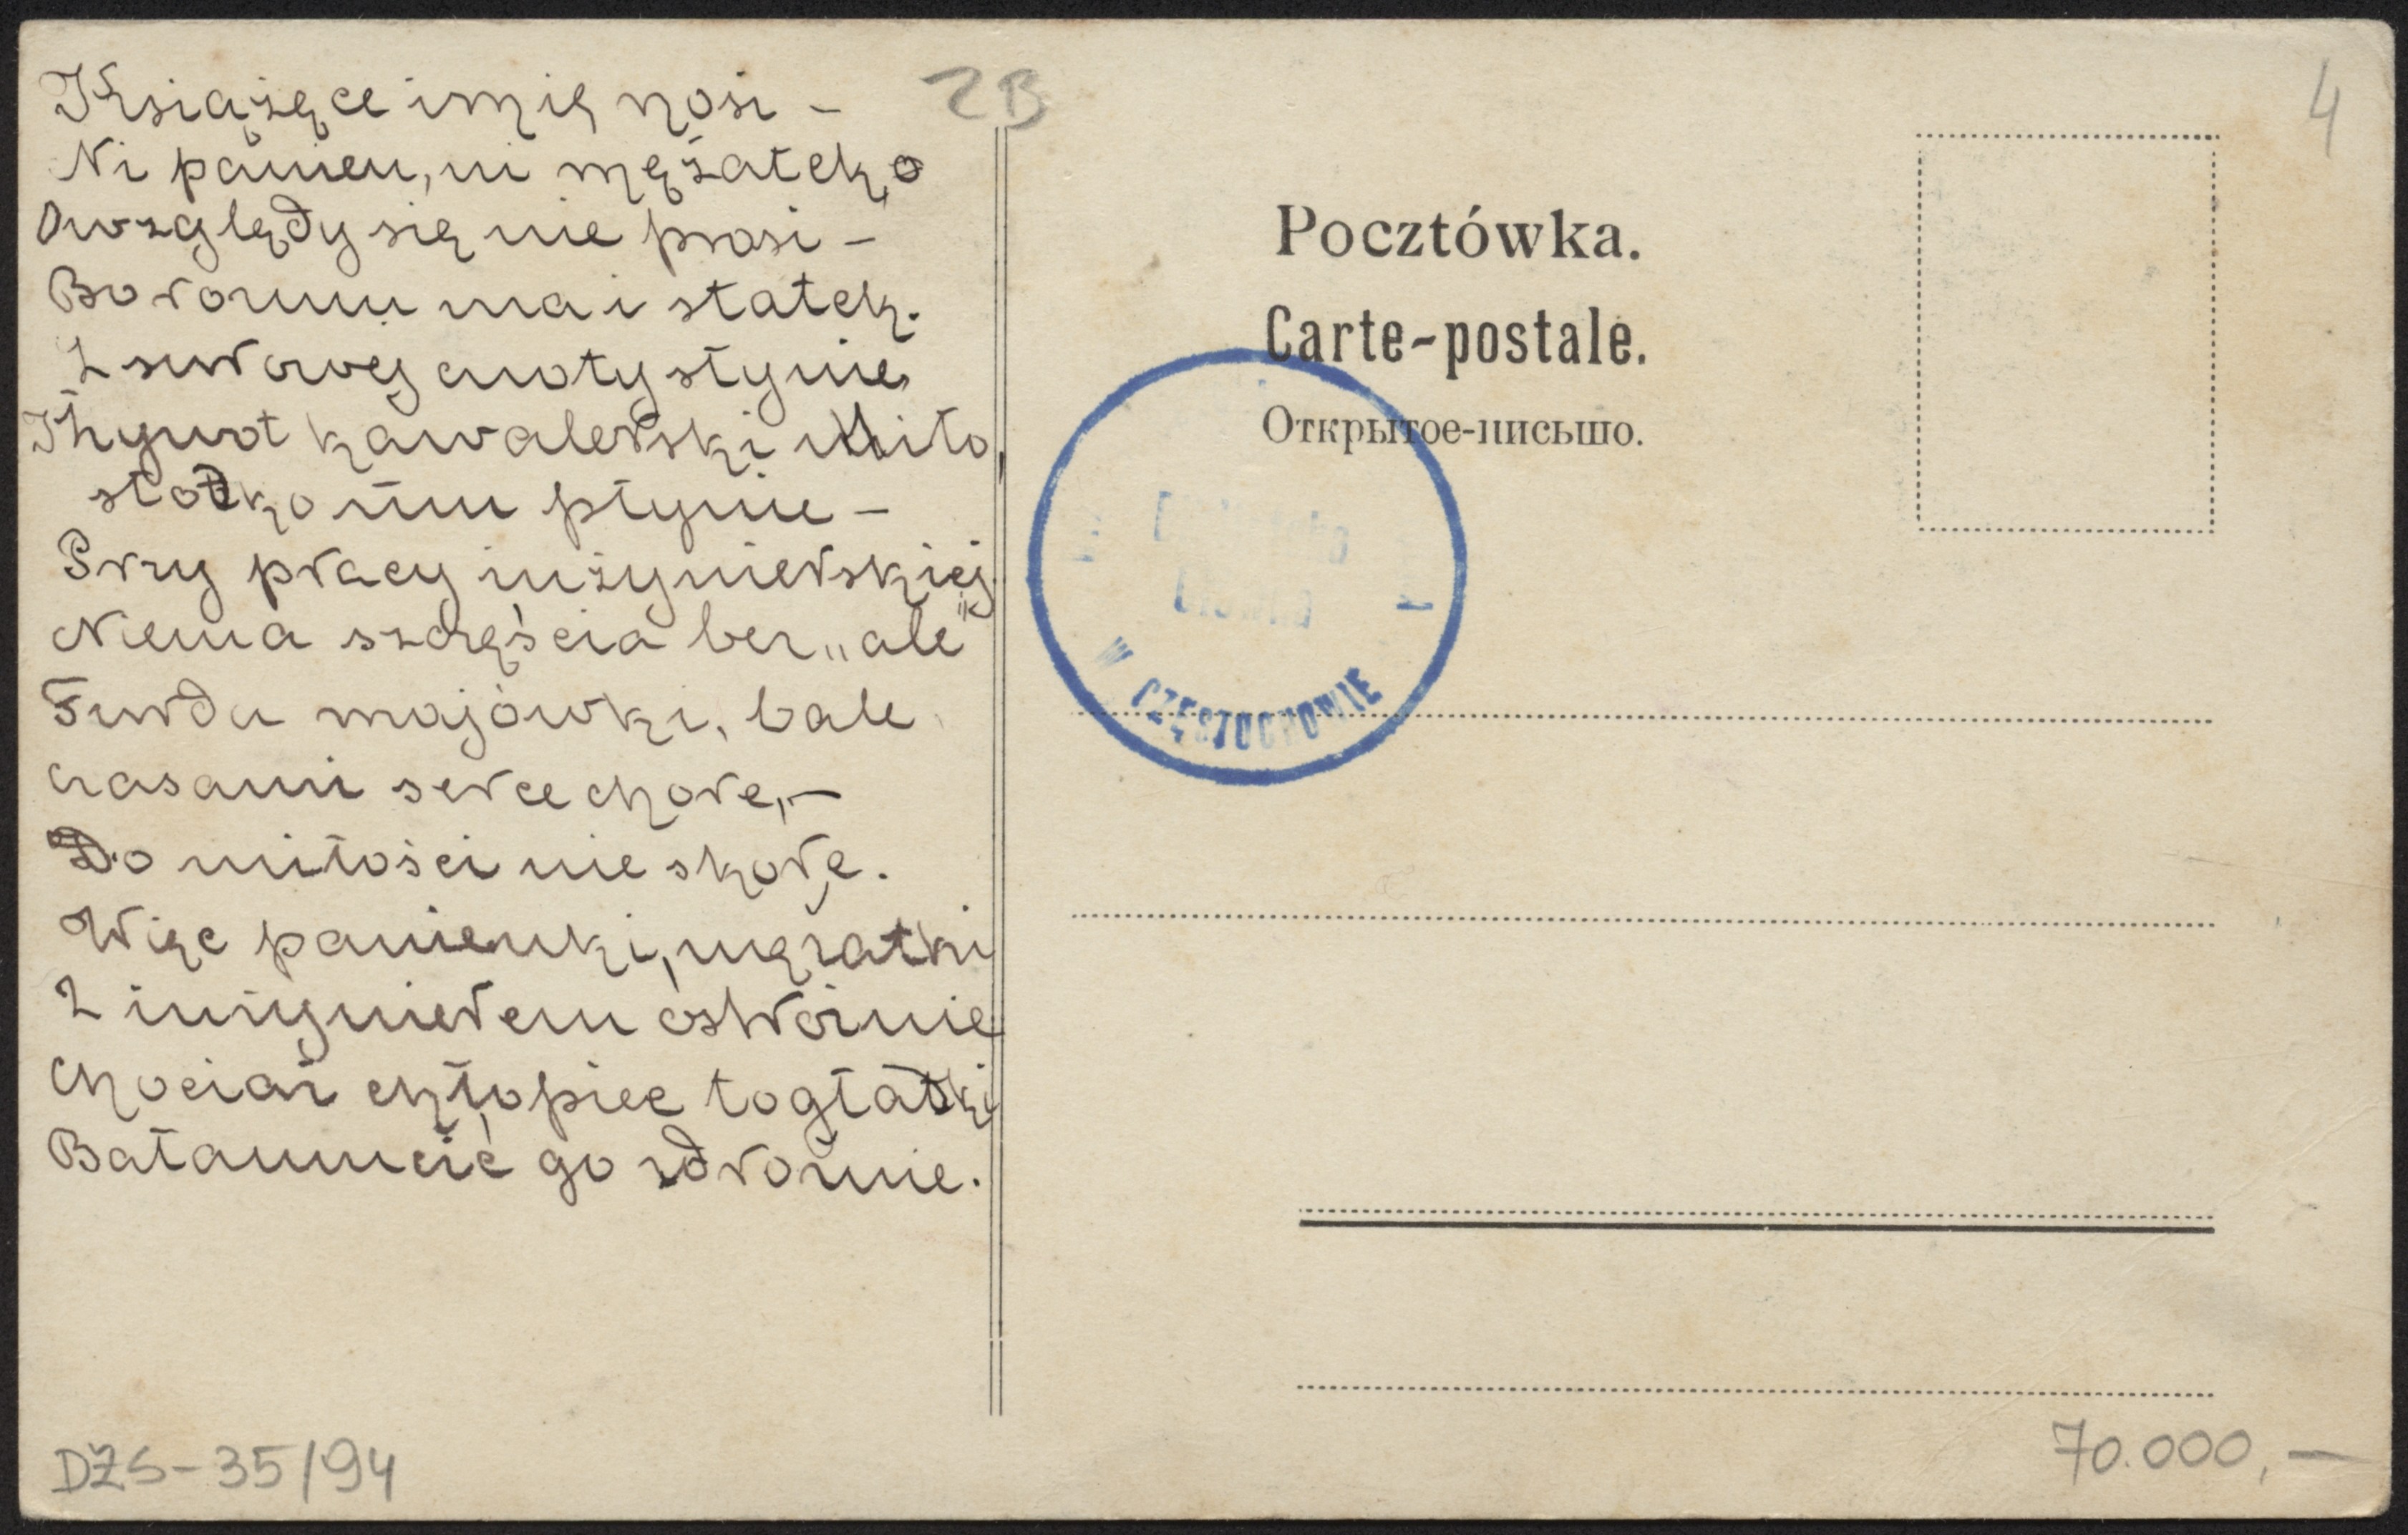 Książęce imię nosi –
Ni panien, ni mężatek, o
O względy się nie prosi –
Bo rozum ma i statek.
Z surowej cnoty słynie
I żywot kawalerski miło,
słodko mu płynie –
Przy pracy inżynierskiej
Niema szczęścia bez „ale"
Furda majówki, bale
czasami serce chore, –
Do miłości nie skore.
Więc panienki, mężatki
Z inżynierem ostrożnie
Chociaż chłopiec to gładki
Bałamucić go zdrożnie.
DŻS – 35/94
ZB
4
Pocztówka.
Carte-postale.
Открытое-письмо.
W CZĘSTOCHOWIE
70.000,–